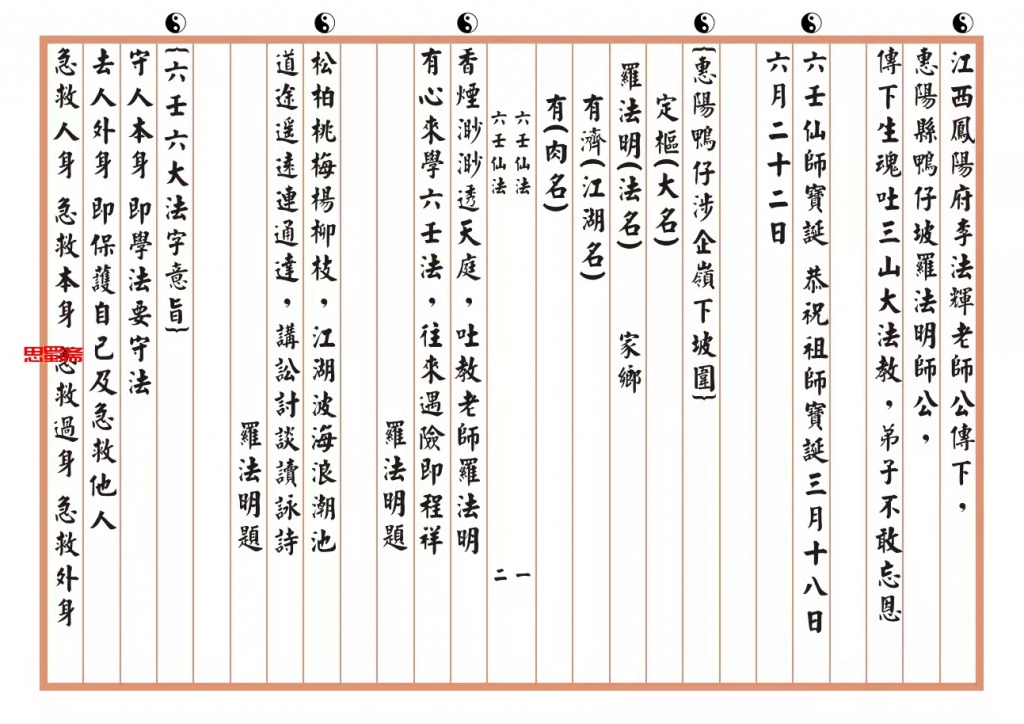 江西鳳陽府李法輝老師公傳下，
惠陽縣鴨仔坡羅法明師公，
傳下生魂吐三山大法教，弟子不敢忘恩
六壬仙師寶誕 恭祝祖師寶誕三月十八日
六月二十二日
{惠陽鴨仔涉企嶺下坡圍}
定樞(大名)
羅法明(法名) 家鄉
有濟(江湖名)
有(肉名)
六壬仙法 一
六壬仙法 二
香煙渺渺透天庭，吐教老師羅法明
有心來學六壬法，往來遇險即程祥
羅法明題
松柏桃梅楊柳枝，江湖波海浪潮池
道途遥遠連通達，講訟討談讀詠詩
羅法明題
{六壬六大法字意旨}
守人本身 即學法要守法
去人外身 即保護自己及急救他人
急救人身 急救本身 急救過身 急救外身
思蜀齋